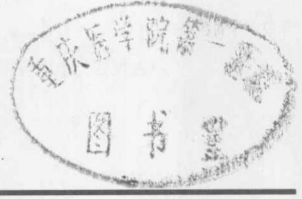 重庆医学院第一
图书室